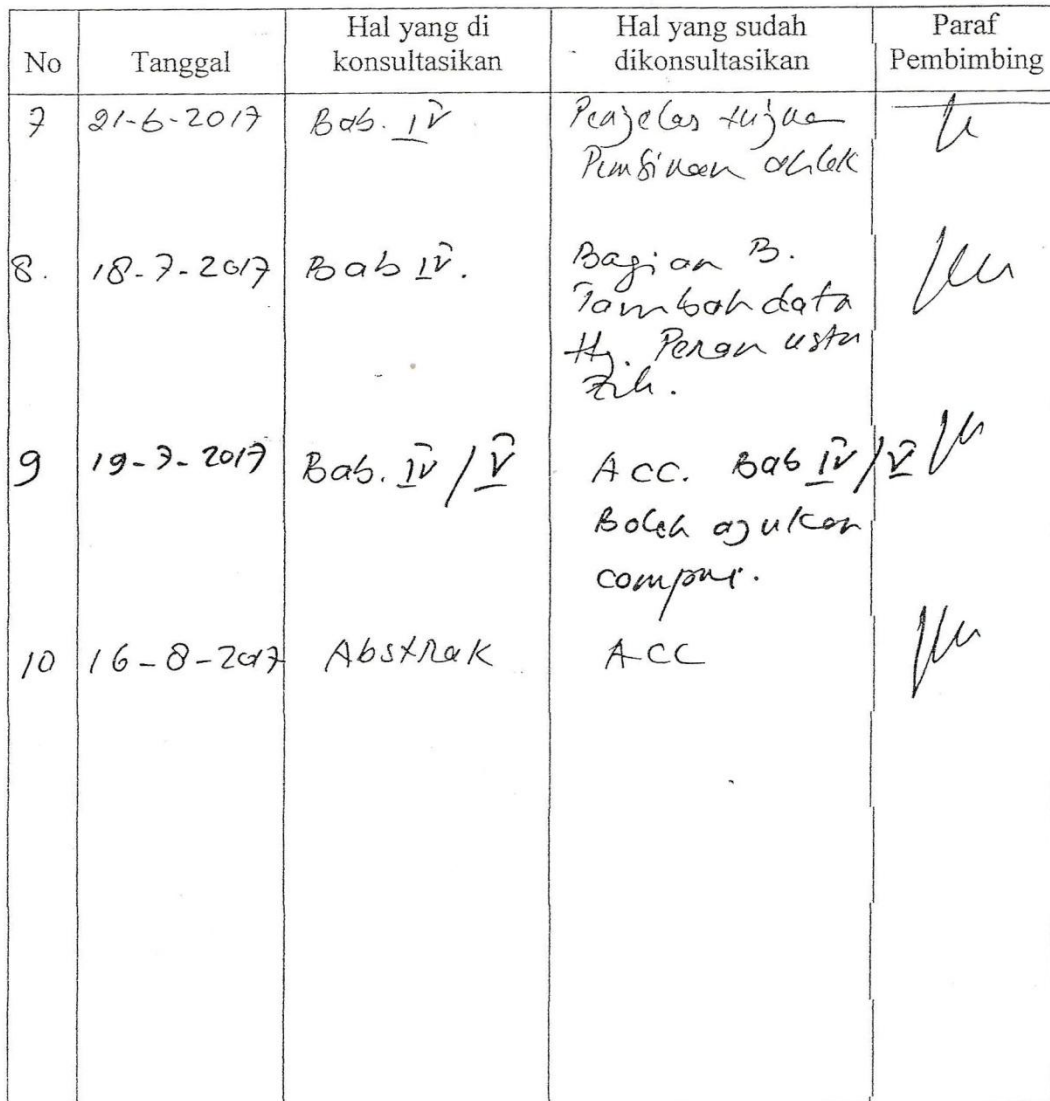 No Tanggal Hal yang di konsultasikan Hal yang sudah dikonsultasikan Paraf Pembimbing
7 21-6-2017 Bab. IV Penjelas tujuan
Pembinaan akhlak
8. 18-7-2017 Bab IV. Bagian B.
Tambah data
Hj. Peran usta
Zih.
9 19-7-2017 Bab. IV / V ACC. Bab IV / V
Boleh ajukan
compre.
10 16-8-2017 Abstrak ACC